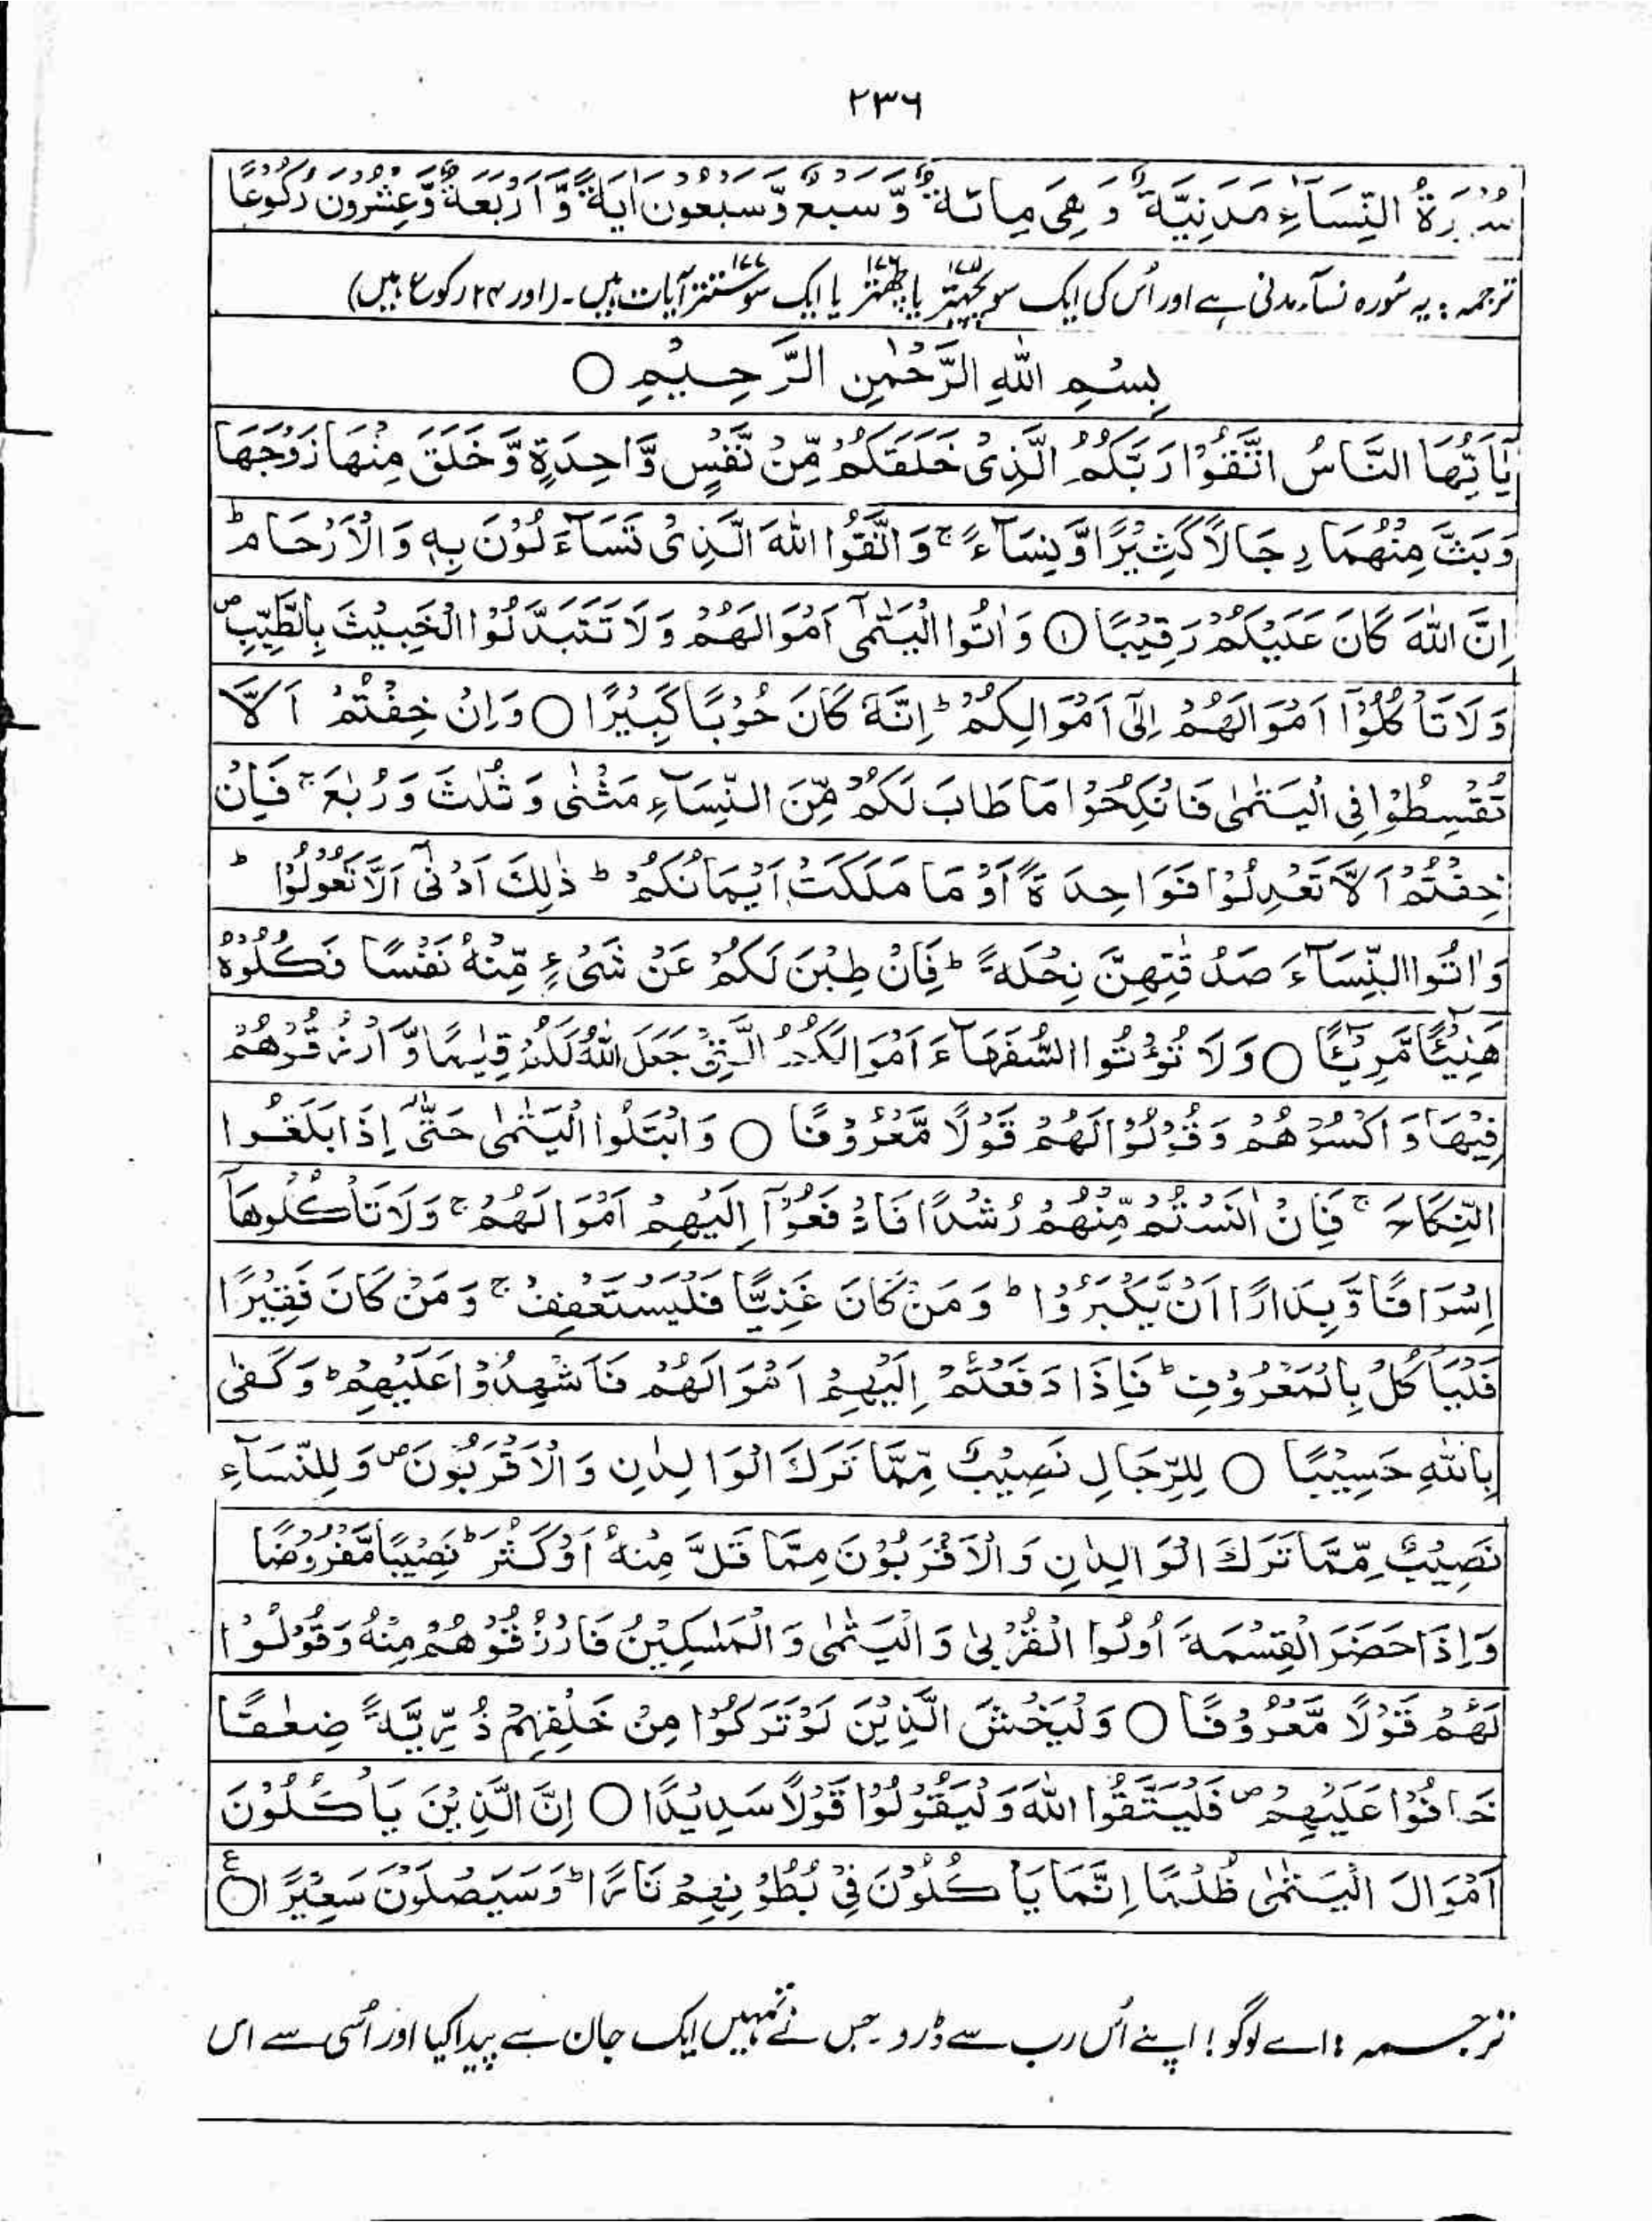 ۲۳۶
سُوْرَةُ النِّسَآءِ مَدَنِيَّةٌ وَهِىَ مِائَةٌ وَّسَبْعٌ وَّسَبْعُوْنَ اٰيَةً وَّاَرْبَعَةٌ وَّعِشْرُوْنَ رُكُوْعًا
ترجمہ : یہ سُورہ نسآء مدنی ہے اور اُس کی ایک سو پچہتر ۱۷۵ یا چھہتر ۱۷۶ یا ایک سو ستتر ۱۷۷ آیات ہیں۔ (اور ۲۴ رکوع ہیں)
بِسْمِ اللّٰهِ الرَّحْمٰنِ الرَّحِيْمِ ○
يٰٓاَيُّهَا النَّاسُ اتَّقُوْا رَبَّكُمُ الَّذِىْ خَلَقَكُمْ مِّنْ نَّفْسٍ وَّاحِدَةٍ وَّخَلَقَ مِنْهَا زَوْجَهَا
وَبَثَّ مِنْهُمَا رِجَالًا كَثِيْرًا وَّنِسَآءً ۚ وَاتَّقُوا اللّٰهَ الَّذِىْ تَسَآءَلُوْنَ بِهٖ وَالْاَرْحَامَ ؕ
اِنَّ اللّٰهَ كَانَ عَلَيْكُمْ رَقِيْبًا ① وَاٰتُوا الْيَتٰمٰٓى اَمْوَالَهُمْ وَلَا تَتَبَدَّلُوا الْخَبِيْثَ بِالطَّيِّبِ ص
وَلَا تَاْكُلُوْٓا اَمْوَالَهُمْ اِلٰٓى اَمْوَالِكُمْ ؕ اِنَّهٗ كَانَ حُوْبًا كَبِيْرًا ○ وَاِنْ خِفْتُمْ اَلَّا
تُقْسِطُوْا فِى الْيَتٰمٰى فَانْكِحُوْا مَا طَابَ لَكُمْ مِّنَ النِّسَآءِ مَثْنٰى وَثُلٰثَ وَرُبٰعَ ۚ فَاِنْ
خِفْتُمْ اَلَّا تَعْدِلُوْا فَوَاحِدَةً اَوْ مَا مَلَكَتْ اَيْمَانُكُمْ ؕ ذٰلِكَ اَدْنٰٓى اَلَّا تَعُوْلُوْا ؕ
وَاٰتُوا النِّسَآءَ صَدُقٰتِهِنَّ نِحْلَةً ؕ فَاِنْ طِبْنَ لَكُمْ عَنْ شَىْءٍ مِّنْهُ نَفْسًا فَكُلُوْهُ
هَنِيْٓئًا مَّرِيْٓئًا ○ وَلَا تُؤْتُوا السُّفَهَآءَ اَمْوَالَكُمُ الَّتِىْ جَعَلَ اللّٰهُ لَكُمْ قِيٰمًا وَّارْزُقُوْهُمْ
فِيْهَا وَاكْسُوْهُمْ وَقُوْلُوْا لَهُمْ قَوْلًا مَّعْرُوْفًا ○ وَابْتَلُوا الْيَتٰمٰى حَتّٰٓى اِذَا بَلَغُوا
النِّكَاحَ ۚ فَاِنْ اٰنَسْتُمْ مِّنْهُمْ رُشْدًا فَادْفَعُوْٓا اِلَيْهِمْ اَمْوَالَهُمْ ۚ وَلَا تَاْكُلُوْهَآ
اِسْرَافًا وَّبِدَارًا اَنْ يَّكْبَرُوْا ؕ وَمَنْ كَانَ غَنِيًّا فَلْيَسْتَعْفِفْ ۚ وَمَنْ كَانَ فَقِيْرًا
فَلْيَاْكُلْ بِالْمَعْرُوْفِ ؕ فَاِذَا دَفَعْتُمْ اِلَيْهِمْ اَمْوَالَهُمْ فَاَشْهِدُوْا عَلَيْهِمْ ؕ وَكَفٰى
بِاللّٰهِ حَسِيْبًا ○ لِلرِّجَالِ نَصِيْبٌ مِّمَّا تَرَكَ الْوَالِدٰنِ وَالْاَقْرَبُوْنَ ص وَلِلنِّسَآءِ
نَصِيْبٌ مِّمَّا تَرَكَ الْوَالِدٰنِ وَالْاَقْرَبُوْنَ مِمَّا قَلَّ مِنْهُ اَوْ كَثُرَ ؕ نَصِيْبًا مَّفْرُوْضًا
وَاِذَا حَضَرَ الْقِسْمَةَ اُولُوا الْقُرْبٰى وَالْيَتٰمٰى وَالْمَسٰكِيْنُ فَارْزُقُوْهُمْ مِنْهُ وَقُوْلُوْا
لَهُمْ قَوْلًا مَّعْرُوْفًا ○ وَلْيَخْشَ الَّذِيْنَ لَوْ تَرَكُوْا مِنْ خَلْفِهِمْ ذُرِّيَّةً ضِعٰفًا
خَافُوْا عَلَيْهِمْ ص فَلْيَتَّقُوا اللّٰهَ وَلْيَقُوْلُوْا قَوْلًا سَدِيْدًا ○ اِنَّ الَّذِيْنَ يَاْكُلُوْنَ
اَمْوَالَ الْيَتٰمٰى ظُلْمًا اِنَّمَا يَاْكُلُوْنَ فِىْ بُطُوْنِهِمْ نَارًا ؕ وَسَيَصْلَوْنَ سَعِيْرًا ○ ع
ترجمہ : اے لوگو ! اپنے اُس رب سے ڈرو۔ جس نے تمہیں ایک جان سے پیدا کیا اور اُسی سے اس